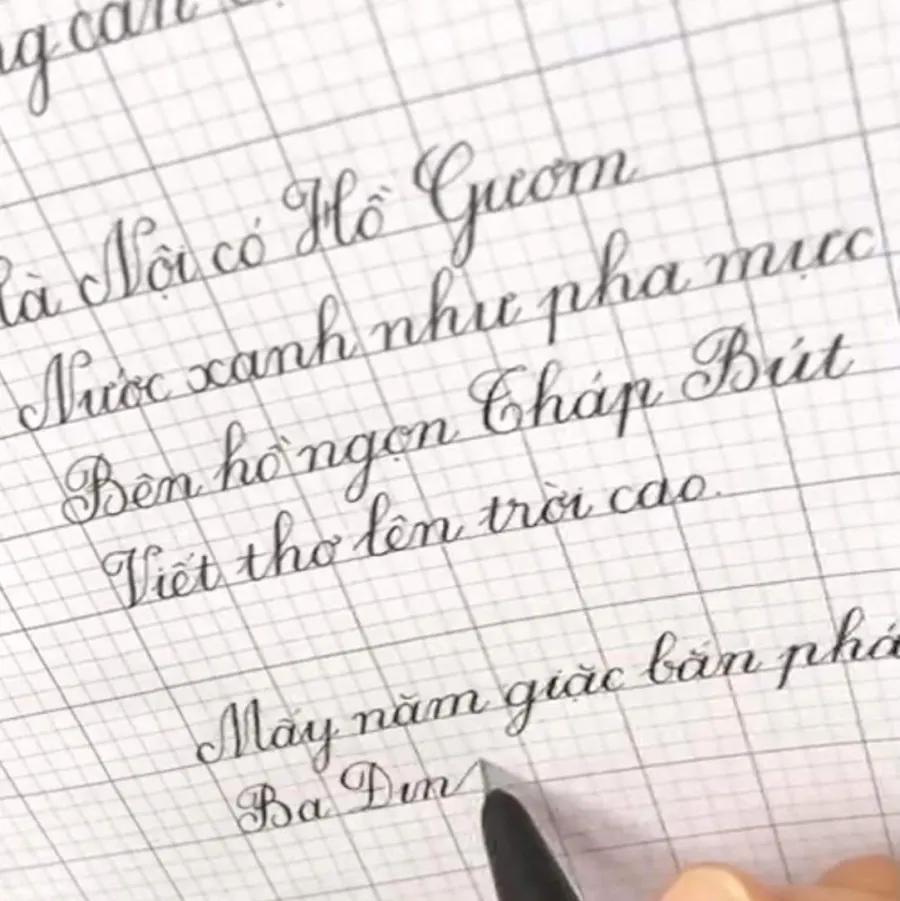 ng căn
Hà Nội có Hồ Gươm
Nước xanh như pha mực
Bên hồ ngọn Tháp Bút
Viết thơ lên trời cao.
Mấy năm giặc bắn phá
Ba Đin